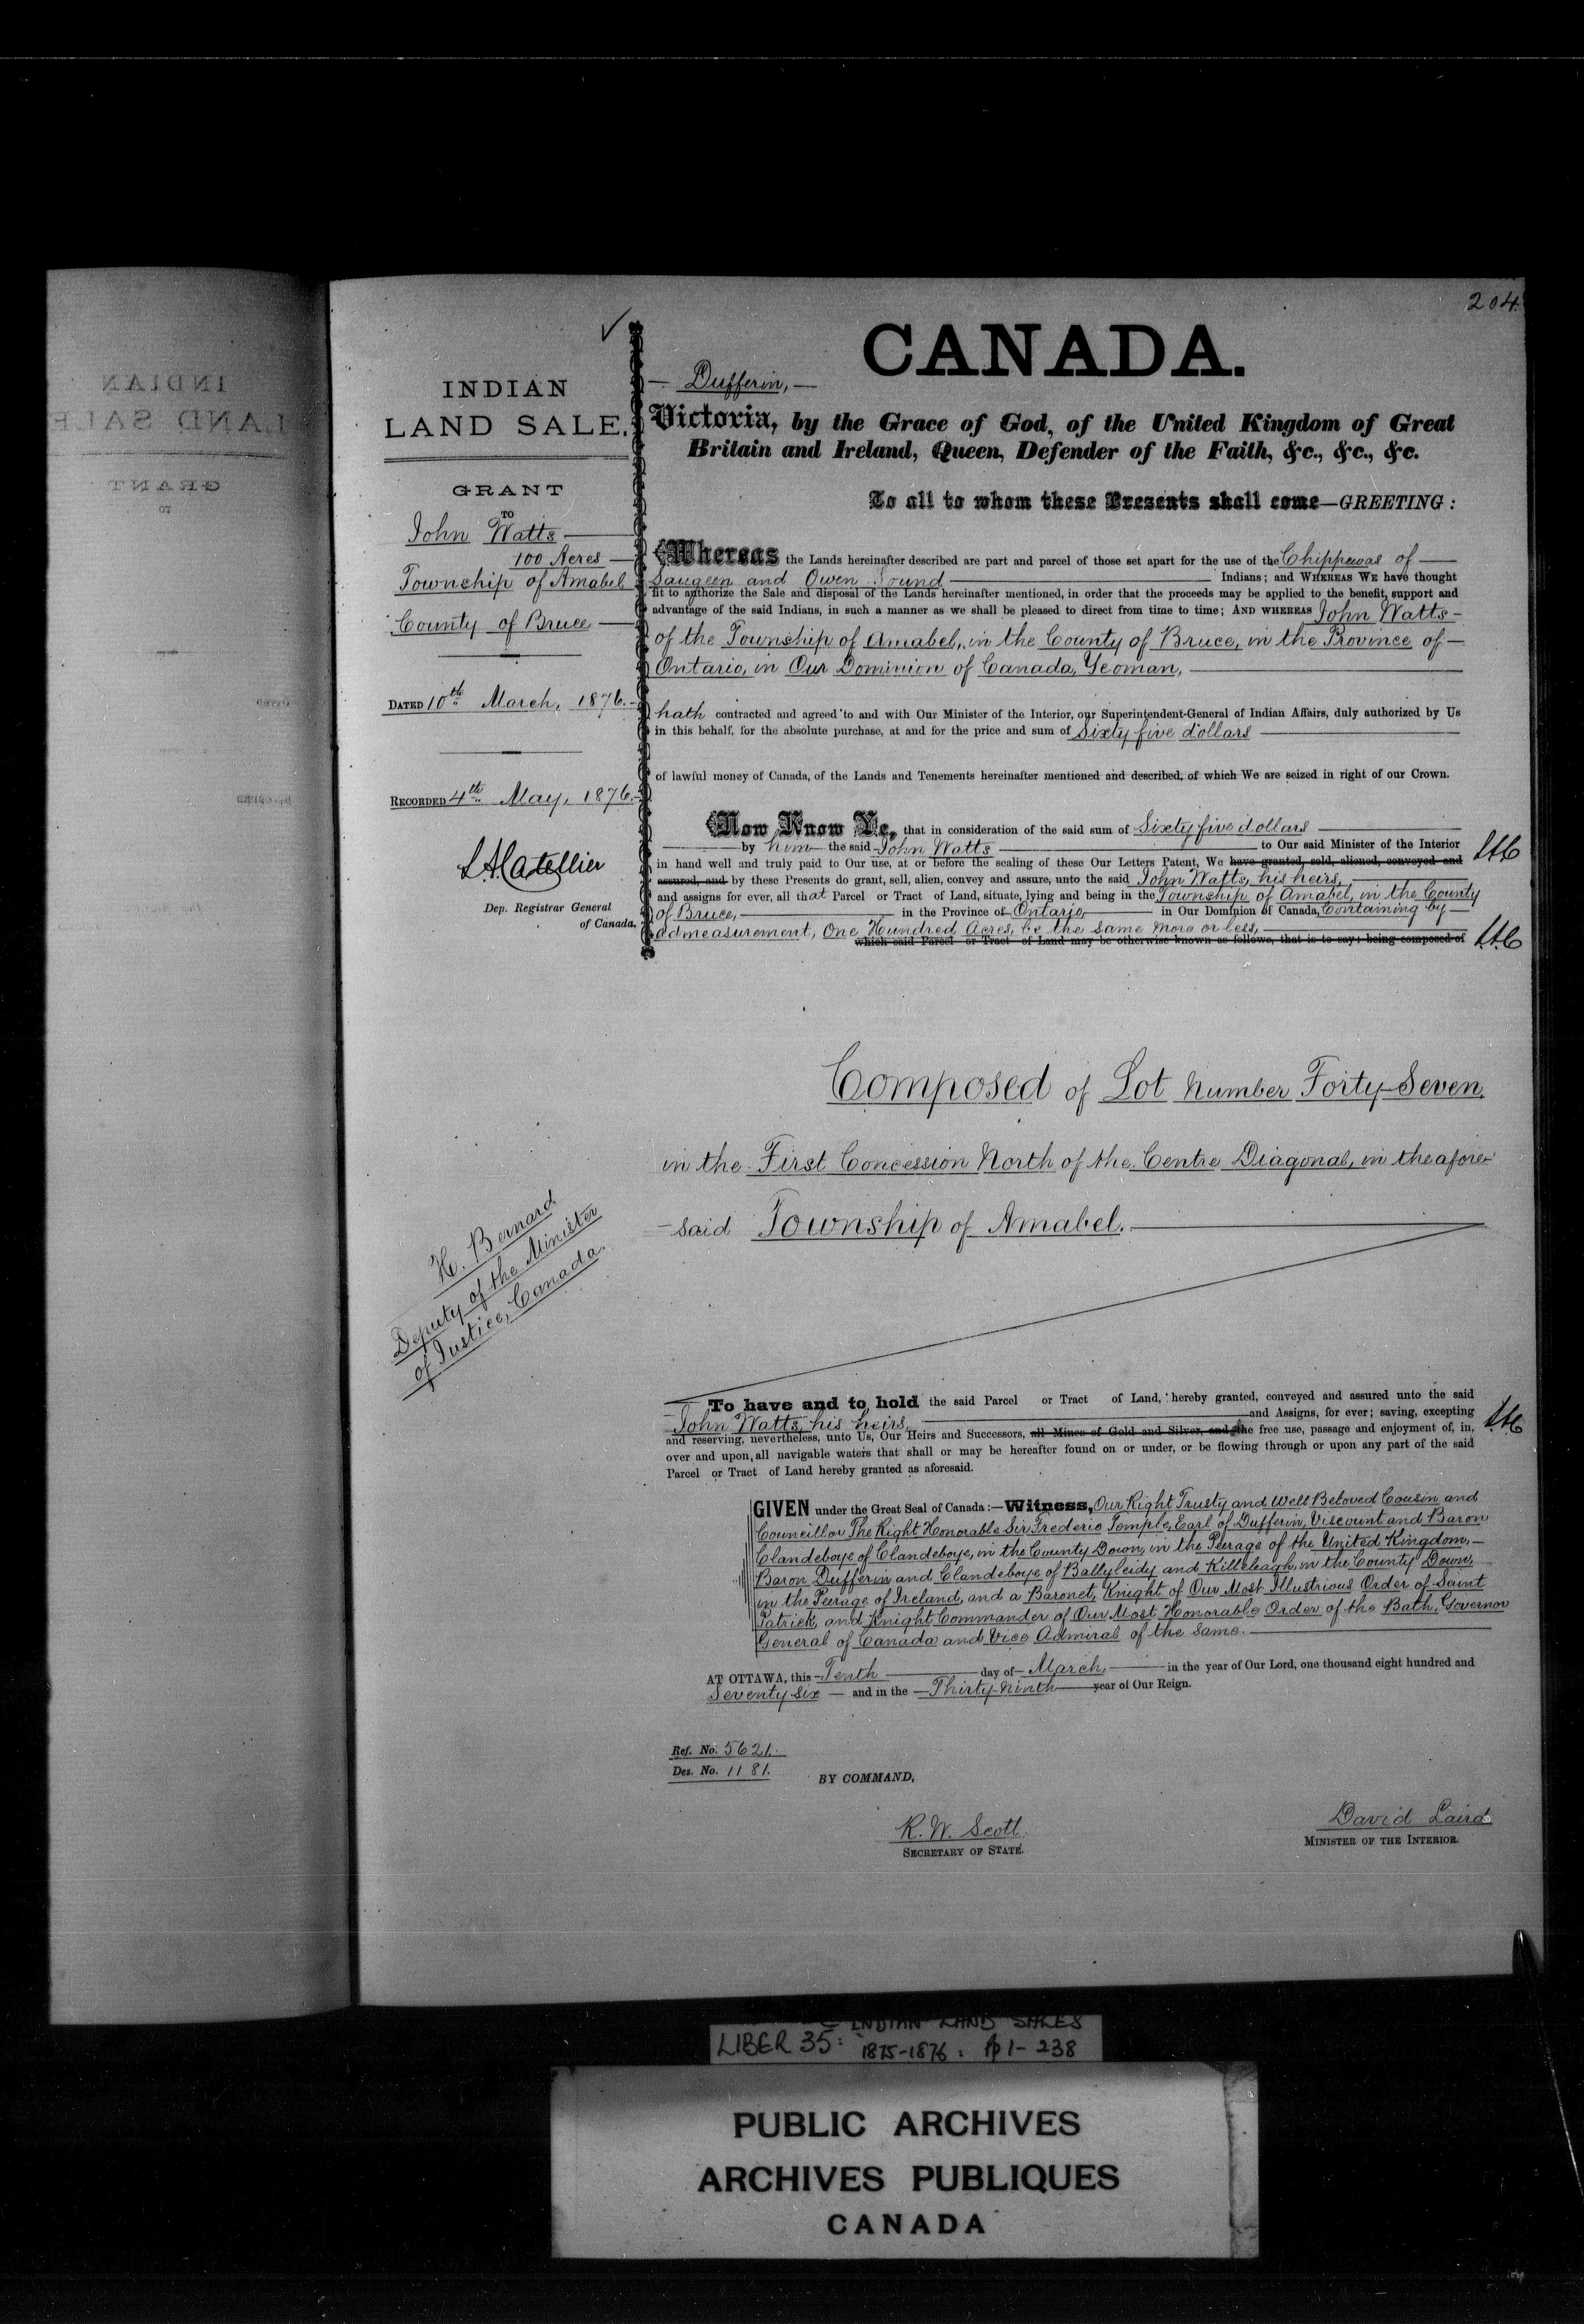 204.
CANADA.
Dufferin,
Victoria, by the Grace of God, of the United Kingdom of Great
Britain and Ireland, Queen, Defender of the Faith, &c., &c., &c.
To all to whom these Presents shall come—GREETING:
INDIAN
LAND SALE.
GRANT
TO
John Watts
100 Acres
Township of Amabel
County of Bruce
DATED 10th March, 1876.
RECORDED 4th May, 1876.
L.A. Catellier
Dep. Registrar General
of Canada.
H. Bernard
Deputy of the Minister
of Justice, Canada.
Whereas the Lands hereinafter described are part and parcel of those set apart for the use of the Chippewas of
Saugeen and Owen Sound Indians; and WHEREAS WE have thought
fit to authorize the Sale and disposal of the Lands hereinafter mentioned, in order that the proceeds may be applied to the benefit, support and
advantage of the said Indians, in such a manner as we shall be pleased to direct from time to time; AND WHEREAS John Watts
of the Township of Amabel, in the County of Bruce, in the Province of
Ontario, in Our Dominion of Canada, Yeoman,
hath contracted and agreed to and with Our Minister of the Interior, our Superintendent-General of Indian Affairs, duly authorized by Us
in this behalf, for the absolute purchase, at and for the price and sum of Sixty five dollars
of lawful money of Canada, of the Lands and Tenements hereinafter mentioned and described, of which We are seized in right of our Crown.
Now Know Ye, that in consideration of the said sum of Sixty five dollars
by him the said John Watts to Our said Minister of the Interior
in hand well and truly paid to Our use, at or before the sealing of these Our Letters Patent, We have granted, sold, aliened, conveyed and LAC
assured, and by these Presents do grant, sell, alien, convey and assure, unto the said John Watts, his heirs,
and assigns for ever, all that Parcel or Tract of Land, situate, lying and being in the Township of Amabel, in the County
of Bruce, in the Province of Ontario, in Our Dominion of Canada, Containing by
admeasurement, One Hundred Acres, be the same more or less,
which said Parcel or Tract of Land may be otherwise known as follows, that is to say: being composed of LAC
Composed of Lot Number Forty-Seven,
in the First Concession North of the Centre Diagonal, in the afore-
said Township of Amabel.
To have and to hold the said Parcel or Tract of Land, hereby granted, conveyed and assured unto the said
John Watts, his heirs, and Assigns, for ever; saving, excepting
and reserving, nevertheless, unto Us, Our Heirs and Successors, all Mines of Gold and Silver, and the free use, passage and enjoyment of, in, LAC
over and upon, all navigable waters that shall or may be hereafter found on or under, or be flowing through or upon any part of the said
Parcel or Tract of Land hereby granted as aforesaid.
GIVEN under the Great Seal of Canada:—Witness, Our Right Trusty and Well Beloved Cousin and
Councillor The Right Honorable Sir Frederic Temple, Earl of Dufferin, Viscount and Baron
Clandeboye of Clandeboye, in the County Down, in the Peerage of the United Kingdom,
Baron Dufferin and Clandeboye of Ballyleidy and Killeleagh, in the County Down,
in the Peerage of Ireland, and a Baronet, Knight of Our Most Illustrious Order of Saint
Patrick, and Knight Commander of Our Most Honorable Order of the Bath, Governor
General of Canada and Vice Admiral of the same.
AT OTTAWA, this Tenth day of March, in the year of Our Lord, one thousand eight hundred and
Seventy six and in the Thirty ninth year of Our Reign.
Ref. No. 5621.
Des. No. 1181.
BY COMMAND,
R. W. Scott
SECRETARY OF STATE.
David Laird
MINISTER OF THE INTERIOR.
INDIAN LAND SALES
LIBER 35: 1875-1876: pp 1-238
PUBLIC ARCHIVES
ARCHIVES PUBLIQUES
CANADA